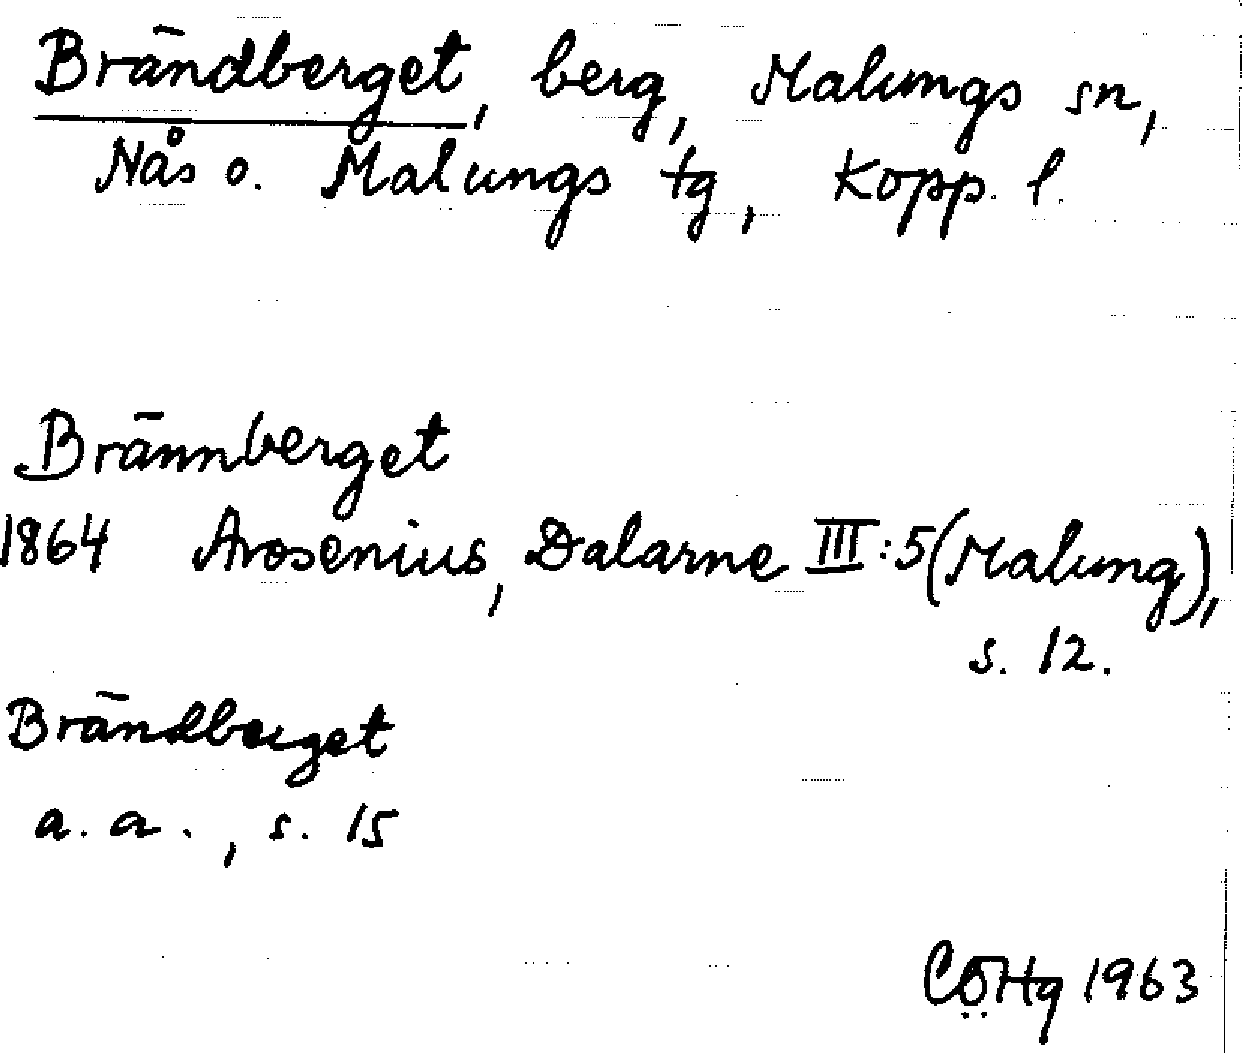 Brändberget, berg, Malungs sn,
Nås o. Malungs tg, Kopp. l.
Brännberget
1864 Arosenius, Dalarne III:5 (Malung),
s. 12.
Brändberget
a. a., s. 15
CÖHg 1963